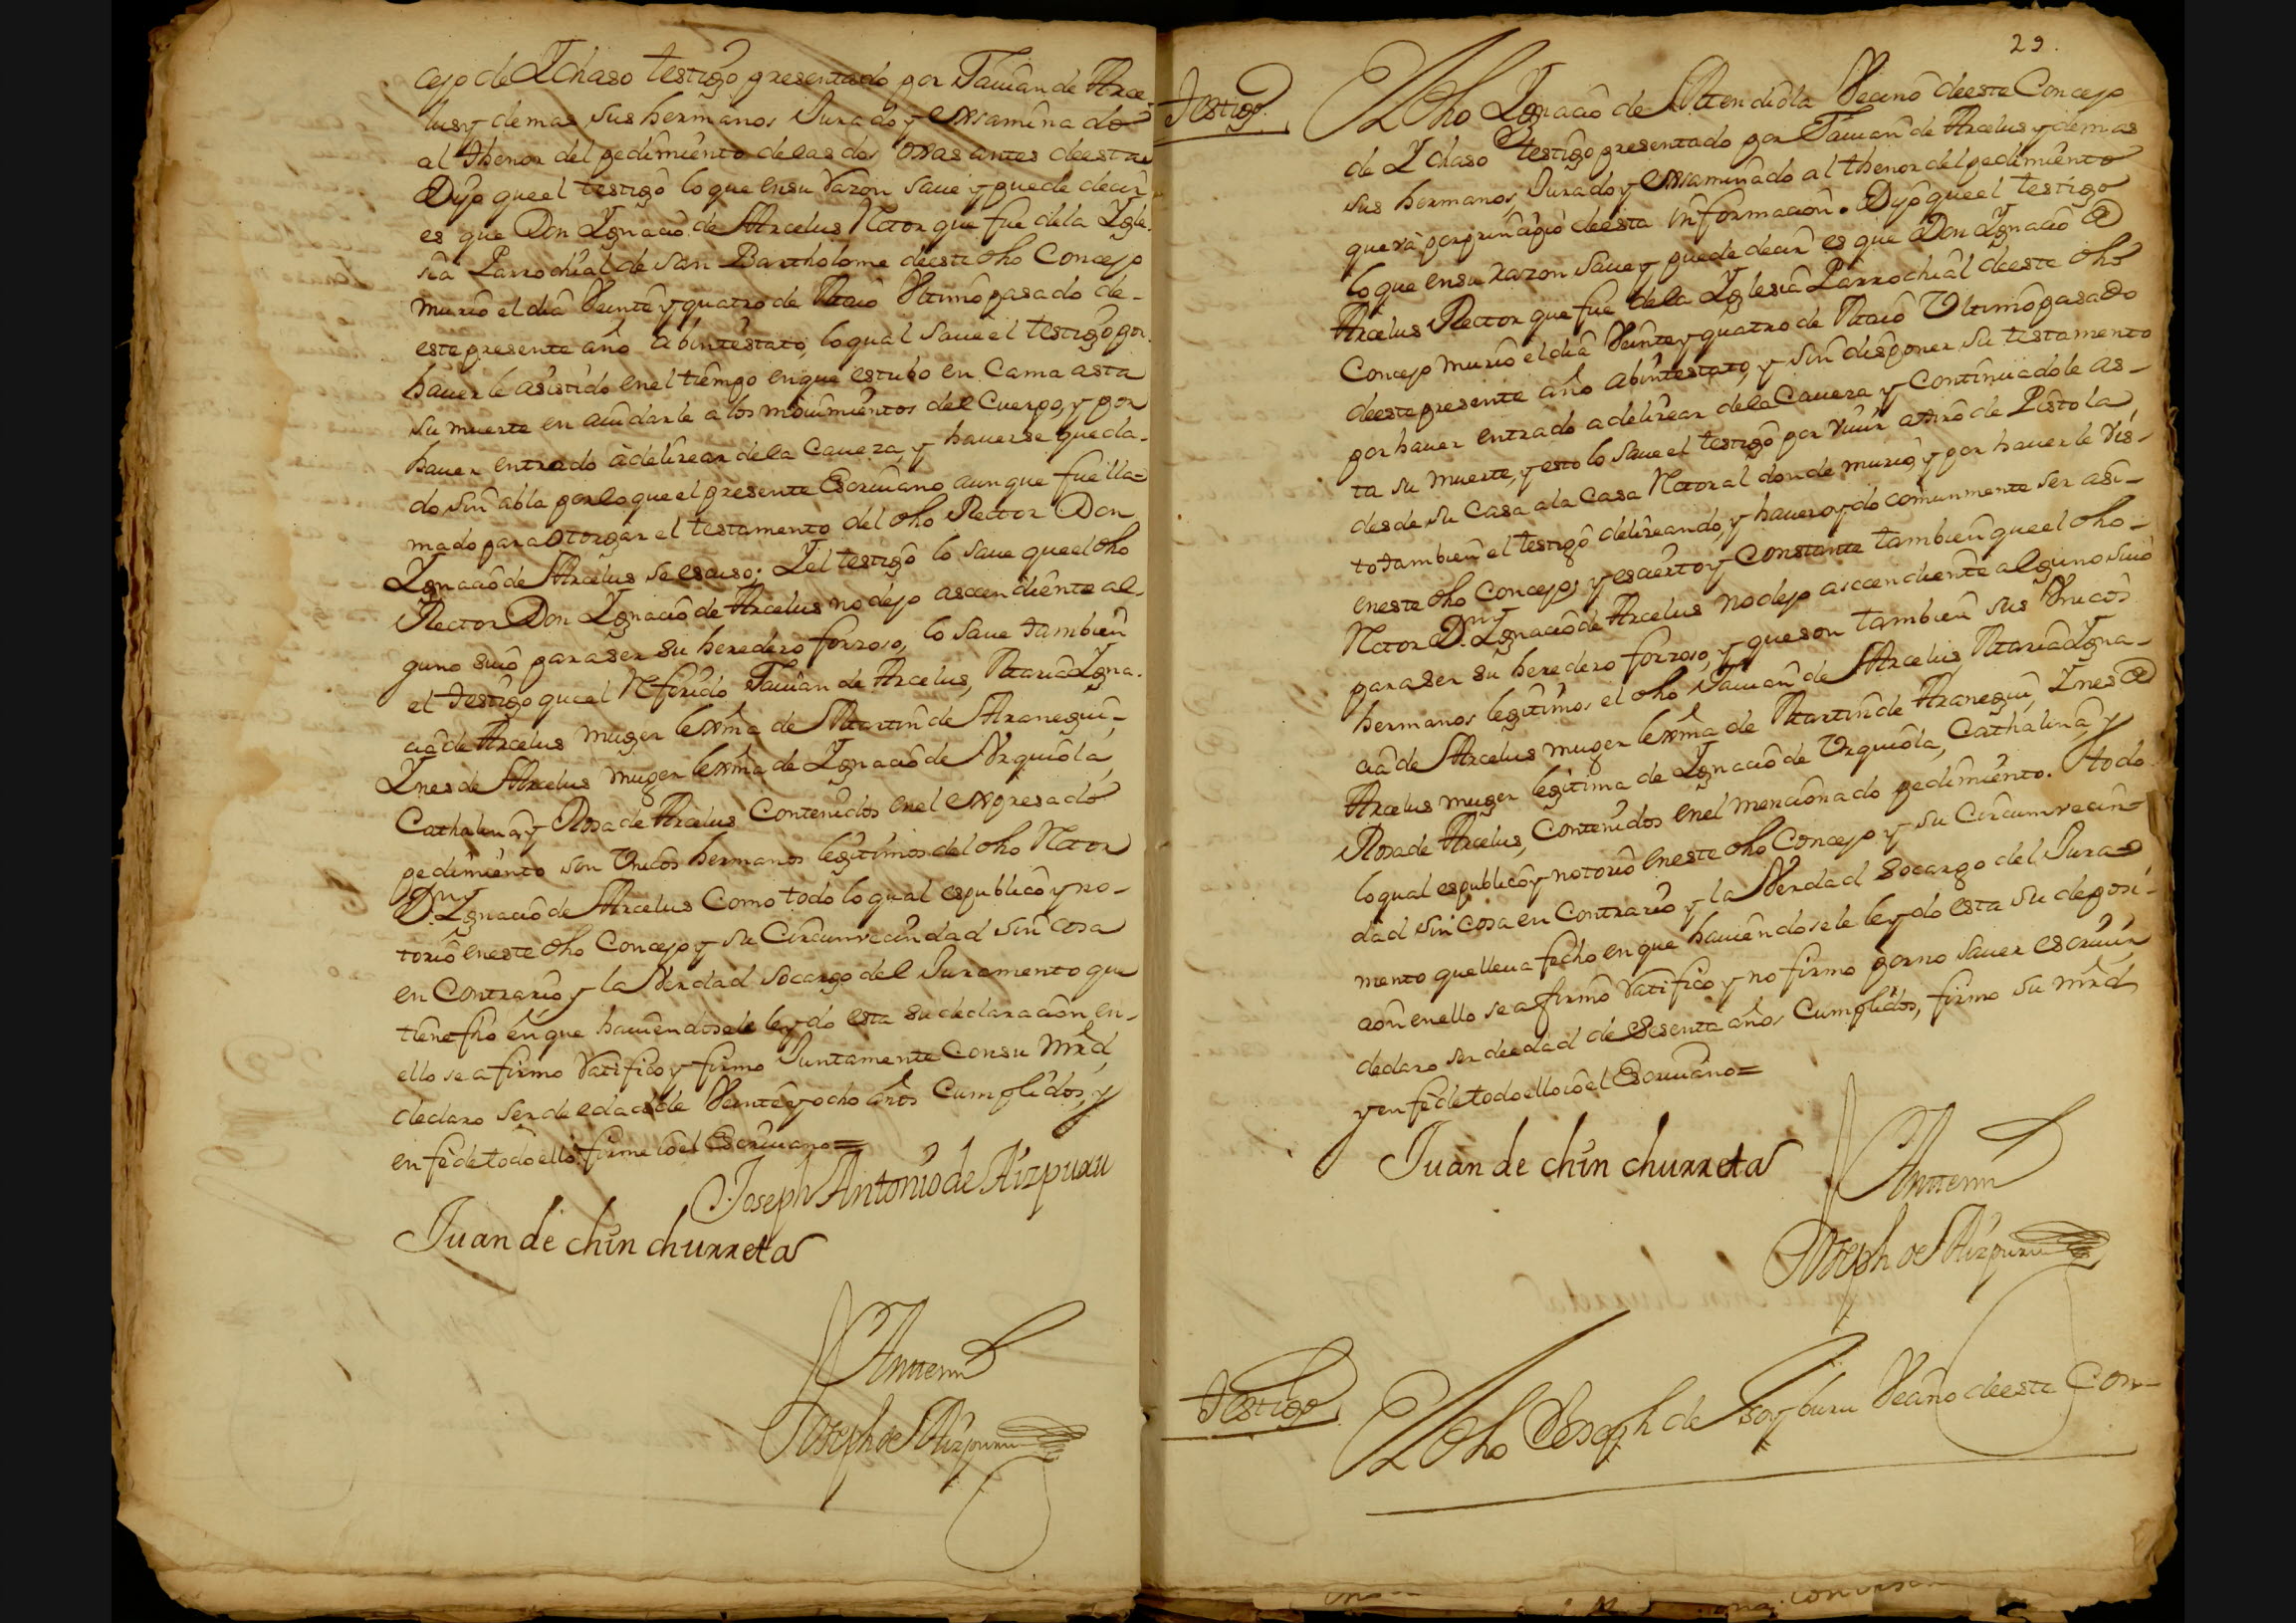 cejo de Ychaso testigo presentado por Jauian de Arce-
lus y demas sus hermanos Jurado y exsaminado
al thenor del pedimiento de las dos oxas antes de esta
Dijo que el testigo lo que en su razon saue y puede decir
es que Don Ygnacio de Arcelus Retor que fue de la Ygle-
sia Parrochial de San Bartholome de este dho Concejo
murio el dia Veinte y quatro de Maio Vltimo pasado de-
este presente año abintestato, lo qual saue el testigo por
hauerle asistido en el tiempo en que estubo en Cama asta
su muerte en aiudarle a los mouimientos del Cuerpo, y por
hauer entrado à delirear de la Caueza, y hauerse queda-
do sin abla por lo que el presente Escriuano aunque fue lla=
mado para otorgar el testamento del dho Rector Don
Ygnacio de Arcelus se escuso; Y el testigo lo saue que el dho
Rector Don Ygnacio de Arcelus no dejo ascendiente al-
guno suio para ser su heredero forzoso, lo saue tambien
el testigo que el Referido Jauian de Arcelus, Maria Ygna-
cia de Arcelus muger lexma de Martin de Aranegui,
Ynes de Arcelus muger lexma de Ygnacio de Vrquiola,
Cathalina, y Rosa de Arcelus Contenidos en el expresado
pedimiento son Vnicos hermanos legitimos del dho Retor
Dn Ygnacio de Arcelus Como todo lo qual es publico y no-
torio en este dho Concejo y su Circumvecindad sin cosa
en Contrario y la Verdad socargo del Juramento que
tiene fho en que hauiendosele leydo esta su declaracion en-
ello se afirmo Ratifico y firmo Juntamente Con su Mrd,
declaro ser de edad de Veinte y ocho años Cumplidos, y
en fè de todo ello firme io el Escriuano=
Joseph Antonio de Aizpuru
Juan de chin churreta
Ante mi
Joseph de Aizpuru
29.
Testigo.
El dho Ygnacio de Mendiola Vecino de este Concejo
de Ychaso testigo presentado por Jauian de Arcelus y demas
sus hermanos, Jurado y exsaminado al thenor del pedimiento
que va por principio de esta informacion. Dijo que el testigo
lo que en su razon saue y puede decir es que Don Ygnacio de
Arcelus Rector que fue de la Yglesia Parrochial de este dho
Concejo murio el dia Veinte y quatro de Maio Vltimo pasado
de este presente año abintestato, y sin disponer su testamento
por hauer entrado a delirear de la Caueza y Continuadole as-
ta su muerte, y esto lo saue el testigo por viuir a tiro de Pistola
desde su Casa a la Casa Retoral donde murio, y por hauerle vis-
to tambien el testigo delireando, y hauer oydo comunmente ser asi-
en este dho Concejo; y es cierto y Constante tambien que el dho-
Retor Dn Ygnacio de Arcelus no dejo ascendiente alguno suio
para ser su heredero forzoso, y que son tambien sus Vnicos
hermanos legitimos el dho Jauian de Arcelus Maria Ygna-
cia de Arcelus muger lexma de Martin de Aranegui, Ynes de
Arcelus muger legitima de Ygnacio de Vrquiola, Cathalina, y
Rosa de Arcelus, Contenidos en el mencionado pedimiento. Y todo
lo qual es publico y notorio en este dho Concejo y su Circumvecin=
dad sin Cosa en Contrario y la Verdad socargo del Jura=
mento que lleua fecho en que hauiendosele leydo esta su deposi-
cion en ello se afirmo Ratifico y no firmo por no sauer escriuir,
declaro ser de edad de Sesenta años Cumplidos, firmo su Mrd,
y en fè de todo ello io el Escriuano=
Juan de chin churreta
Ante mi
Joseph de Aizpuru
Testigo.
El dho Joseph de Ysoyburu Vecino de este Con-